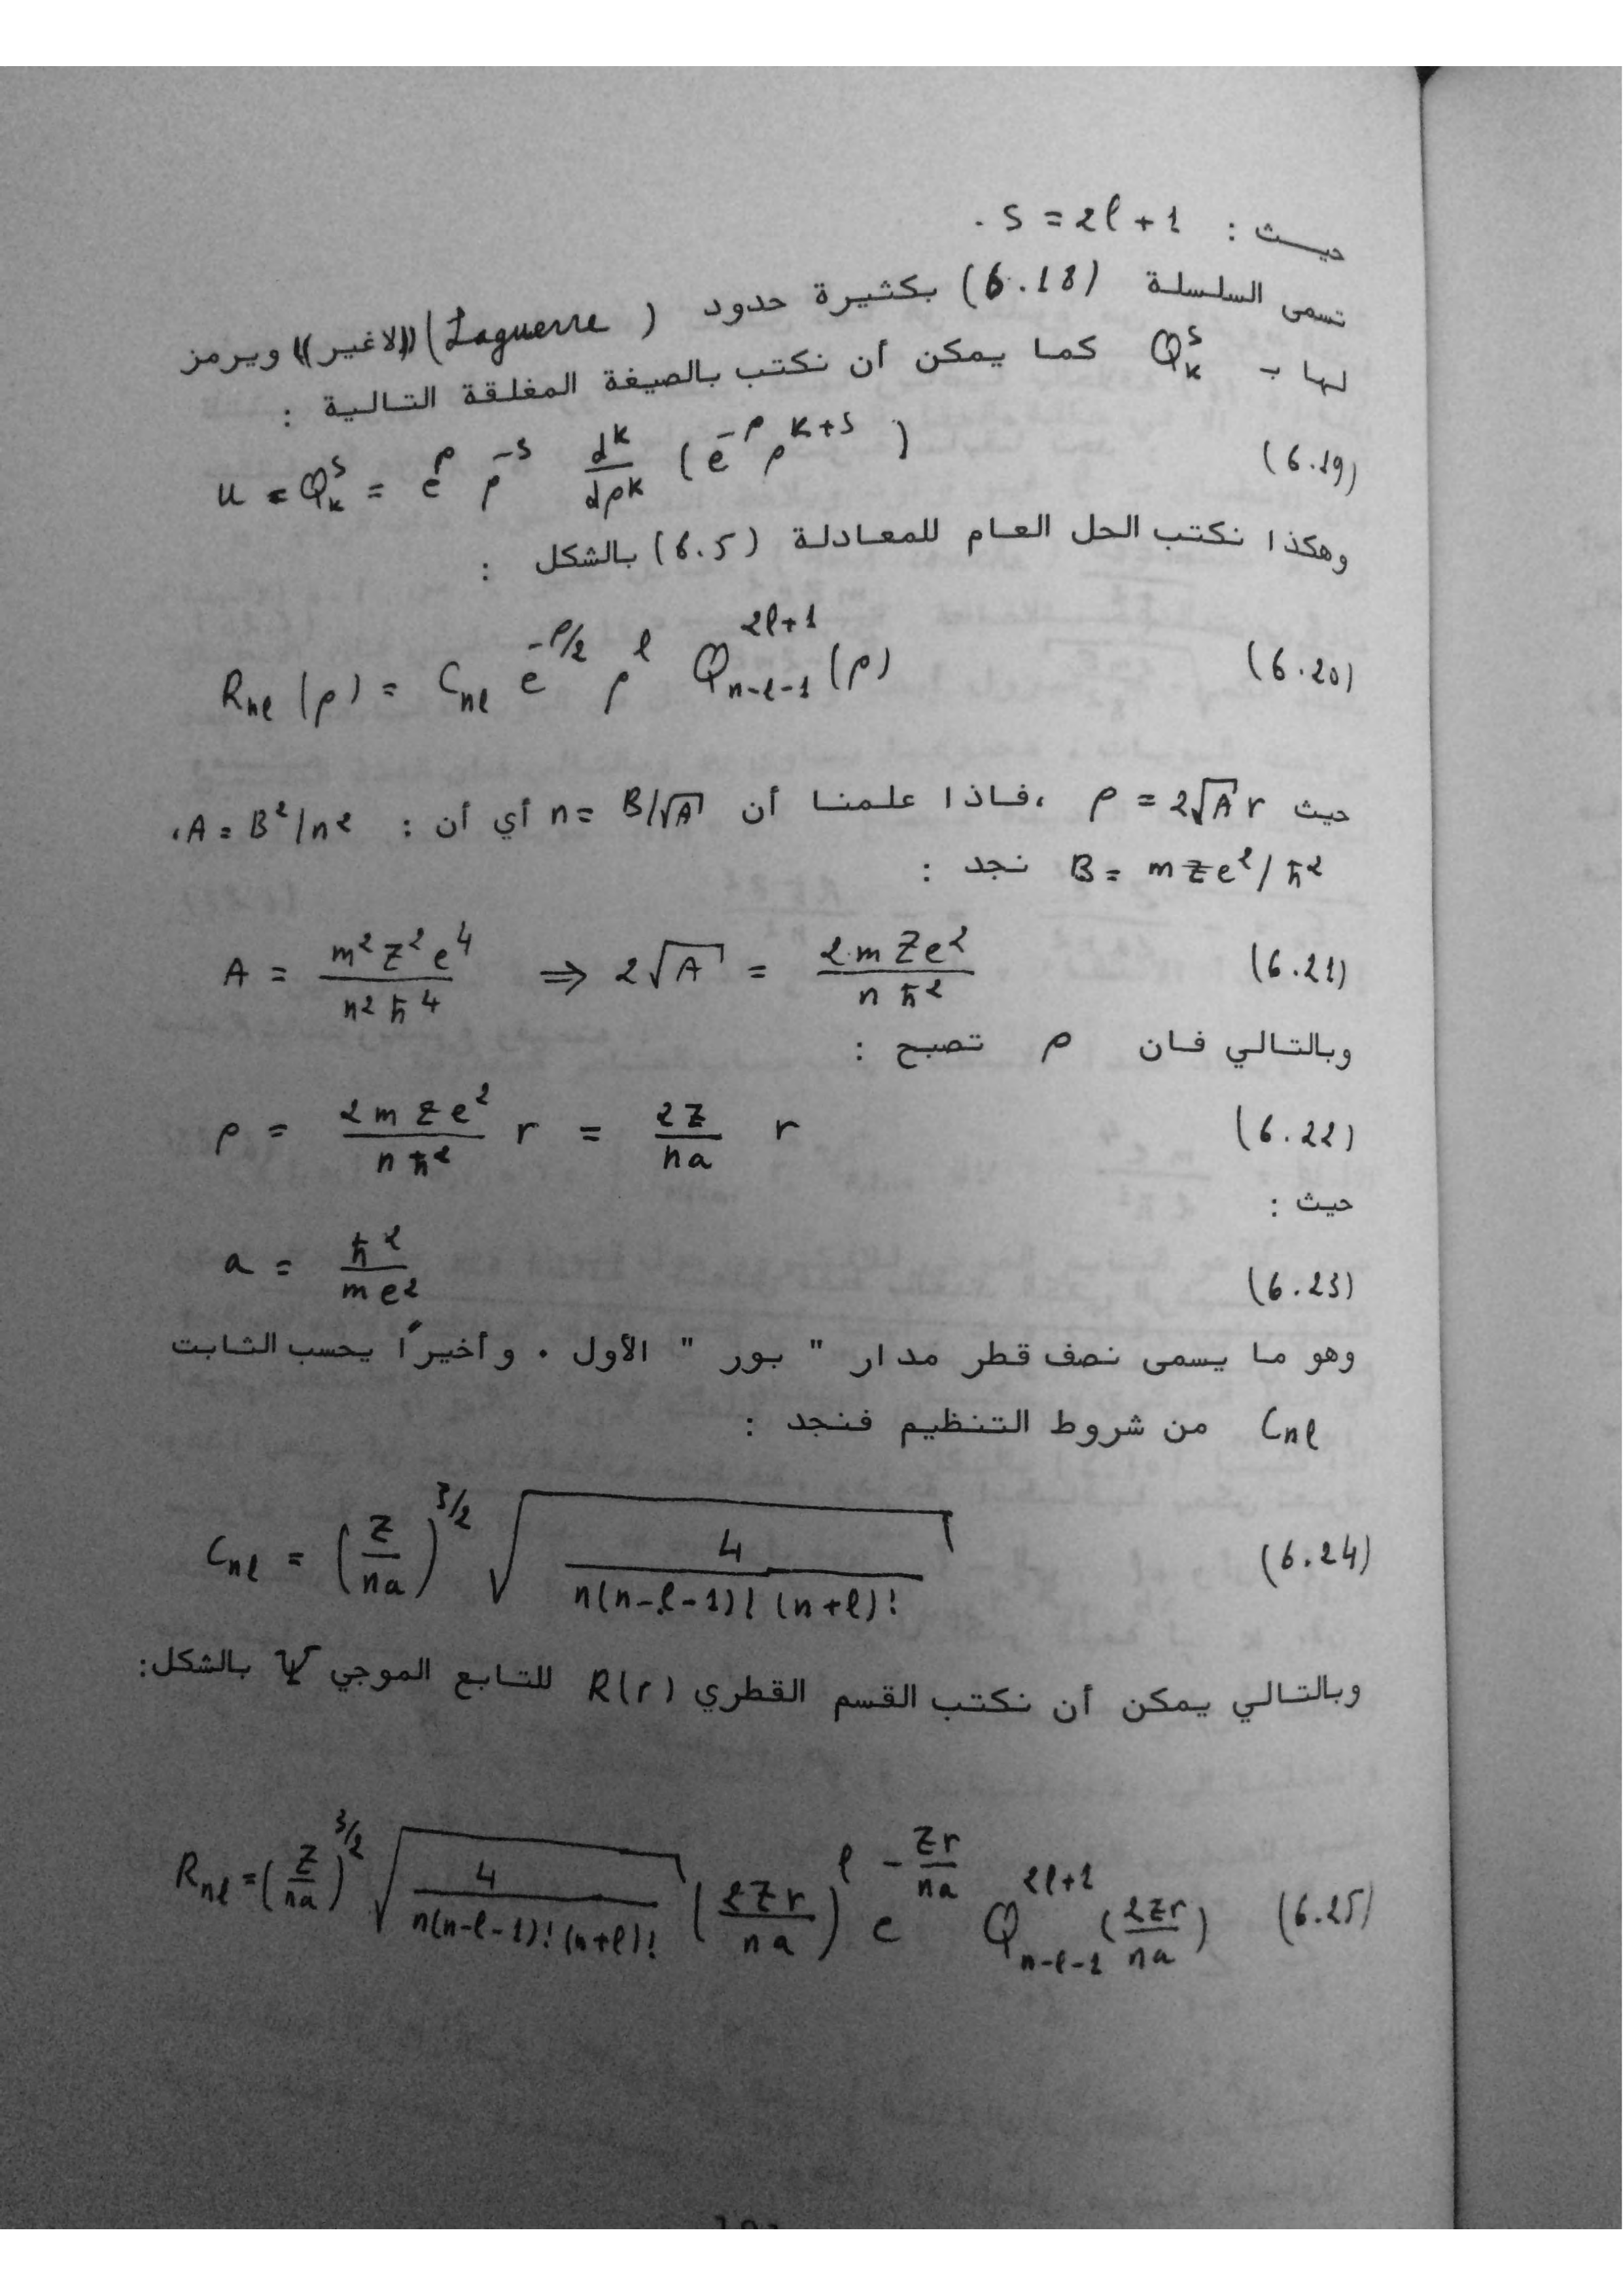 حيث : S = 2ℓ + 1 .
تسمى السلسلة (6.18) بكثيرة حدود (Laguerre) ((لاغير)) ويرمز
لها بـ Q_k^s كما يمكن أن نكتب بالصيغة المغلقة التالية :
u = Q_k^s = e^ρ ρ^{-s} d^k/dρ^k (e^{-ρ} ρ^{k+s}) (6.19)
وهكذا نكتب الحل العام للمعادلة (6.5) بالشكل :
R_{nℓ}(ρ) = C_{nℓ} e^{-ρ/2} ρ^ℓ Q_{n-ℓ-1}^{2ℓ+1}(ρ) (6.20)
حيث ρ = 2√A r ، فاذا علمنا أن n = B/√A أي أن : A = B²/n² ،
B = mZe²/ħ² نجد :
A = m²Z²e⁴/n²ħ⁴ ⇒ 2√A = 2mZe²/nħ² (6.21)
وبالتالي فان ρ تصبح :
ρ = 2mZe²/nħ² r = 2Z/na r (6.22)
حيث :
a = ħ²/me² (6.23)
وهو ما يسمى نصف قطر مدار " بور " الأول . وأخيراً يحسب الثابت
C_{nℓ} من شروط التنظيم فنجد :
C_{nℓ} = (Z/na)^{3/2} √(4/n(n-ℓ-1)! (n+ℓ)!) (6.24)
وبالتالي يمكن أن نكتب القسم القطري R(r) للتابع الموجي Ψ بالشكل:
R_{nℓ} = (Z/na)^{3/2} √(4/n(n-ℓ-1)! (n+ℓ)!) (2Zr/na)^ℓ e^{-Zr/na} Q_{n-ℓ-1}^{2ℓ+1}(2Zr/na) (6.25)